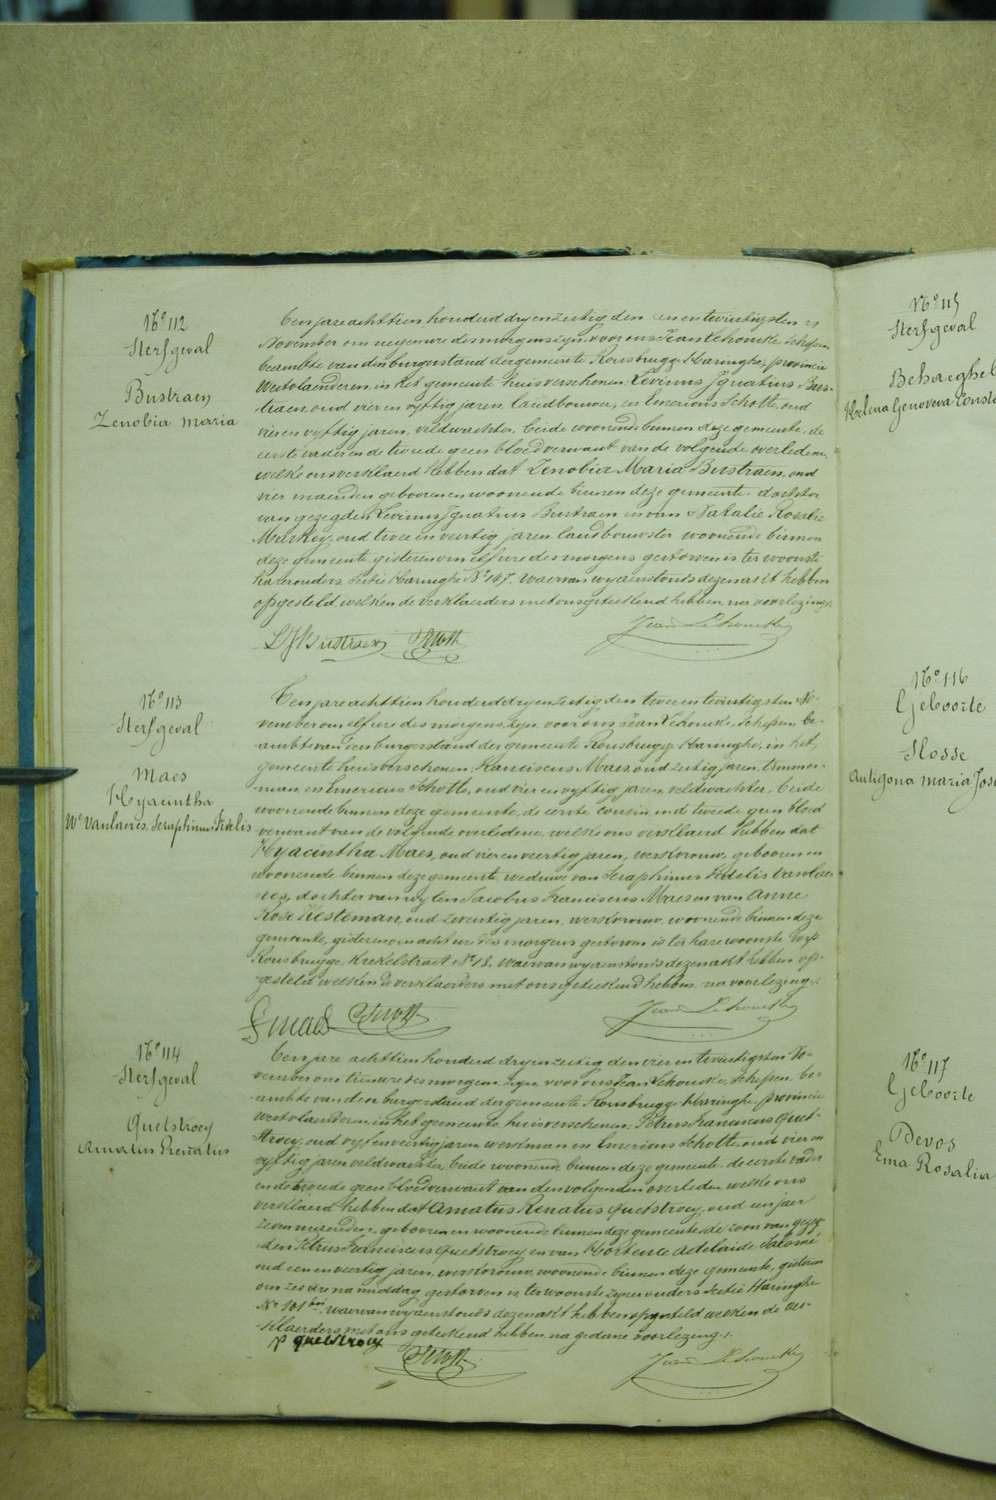 No 112
Sterfgeval
Bustraen
Zenobia Maria
Een jare achttien honderd dry en zestig den een en twintigsten
November om negen ure des morgens zyn voor ons Jean Lehoucke, schepen,
beambte van den burgerstand der gemeente Rousbrugge-Haringhe, provincie
Westvlanderen, in het gemeente huis verschenen Levinus Ignatius Bus-
traen, oud vier en vyftig jaren, landbouwer, en Emericus Scholte, oud
vier en vyftig jaren, veldwachter, beide woonende binnen deze gemeente, de
eerste vader en de tweede geen bloedverwant van de volgende overledene,
welke ons verklaerd hebben dat Zenobia Maria Bustraen, oud
vier maenden geboren en woonende binnen deze gemeente, dochter
van gezegden Levinus Ignatius Bustraen en van Natalie Rosalie
oud twee en veertig jaren landbouwster woonende binnen
deze gemeente, gisteren om elf ure des morgens gestorven is ter woonste
harer ouders Sectie Haringhe No 147. Waervan wy aenstonds dezen akt hebben
opgesteld welken de verklaerders met ons geteekend hebben na voorlezing.
L J Bustraen Jean Lehoucke
No 113
Sterfgeval
Maes
Hyacintha
We Vanlaeres, Seraphinus Fidelis
Een jare achttien honderd dry en zestig den twee en twintigsten No-
vember om elf ure des morgens zyn voor ons Jean Lehoucke, schepen, be-
ambte van den burgerstand der gemeente Rousbrugge-Haringhe, in het
gemeente huis verschenen Franciscus Maes, oud zestig jaren, timmer-
man, en Emericus Scholte, oud vier en vyftig jaren, veldwachter, beide
woonende binnen deze gemeente, de eerste cousin en d tweede geen bloed
verwant van de volgende overledene, welke ons verklaerd hebben dat
Hyacintha Maes, oud vier en veertig jaren, werkvrouw, geboren en
woonende binnen deze gemeente, weduwe van Seraphinus Fidelis Vanlaere
dochter van wylen Jacobus Franciscus Maes en van Anne
Rose Kesteman, oud zeventig jaren, werkvrouw, woonende binnen deze
gemeente, gisteren om acht ure des morgens gestorven is ter hare woonste
Rousbrugge, Krekelstraet No 18. Waervan wy aenstonds dezen akt hebben op-
gesteld welken de verklaerders met ons geteekend hebben na voorlezing.
F Maes Jean Lehoucke
No 114
Sterfgeval
Quetstroey
Amatus Renatus
Een jare achttien honderd dry en zestig den vier en twintigsten No-
vember om tien ure des morgens zyn voor ons Jean Lehoucke, schepen, be-
ambte van den burgerstand der gemeente Rousbrugge-Haringhe, provincie
Westvlanderen, in het gemeente huis verschenen Petrus Franciscus Quet-
stroey, oud vyf en veertig jaren werkman en Emericus Scholte, oud vier en
vyftig jaren veldwachter, beide woonende binnen deze gemeente, de eerste vader
en de tweede geen bloedverwant van den volgenden overleden, welke ons
verklaerd hebben dat Amatus Renatus Quetstroey, oud een jaer
zeven maenden, geboren en woonende binnen deze gemeente, de zoon van gezeg-
den Petrus Franciscus Quetstroey en van Hortence Adelaide Salomé
oud een en veertig jaren, werkvrouw, woonende binnen deze gemeente, gisteren
om zes ure na middag gestorven is ter woonste zyner ouders Sectie Haringhe
No 101 bis. waervan wy aenstonds dezen akt hebben opgesteld welken de ver-
klaerders met ons geteekend hebben na gedane voorlezing.
P quetstroey
Jean Lehoucke
No 115
Sterfgeval
Behaeghel
Helena Genoveva
No 116
Geboorte
Hosse
Antigona Maria
No 117
Geboorte
Devos
Ema Rosalia